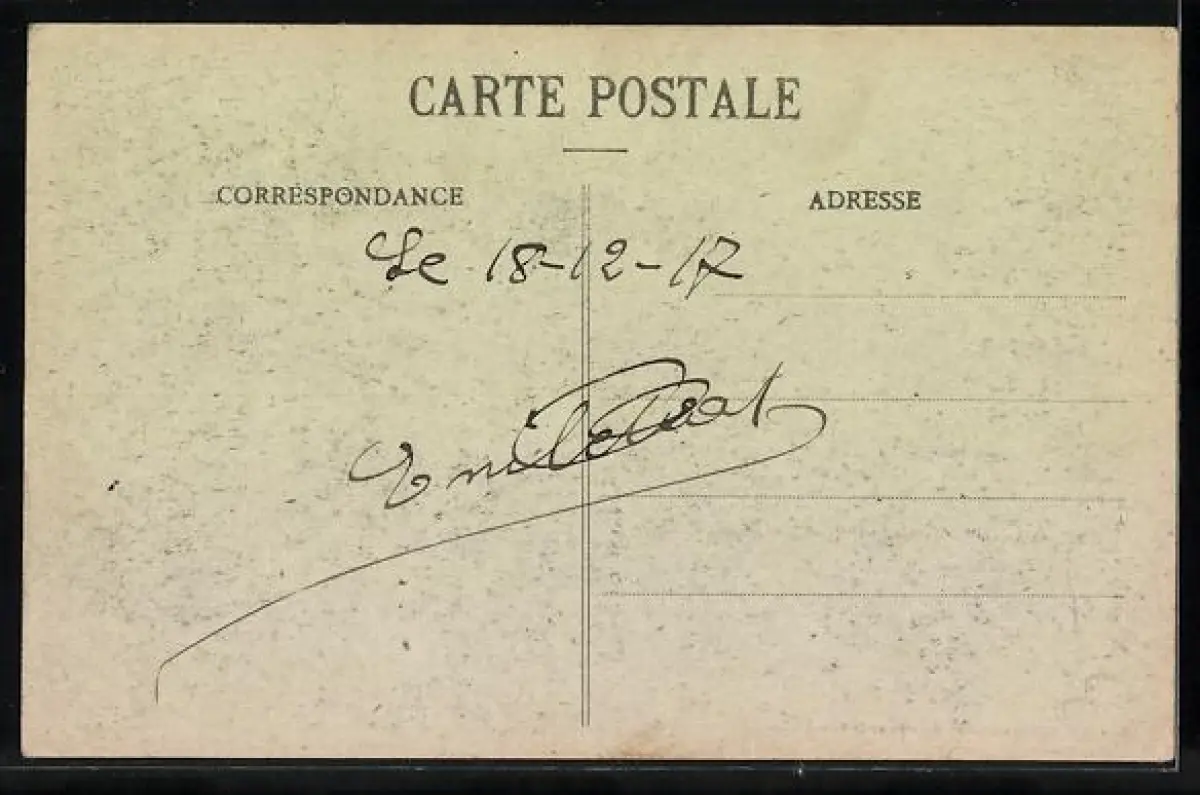 CARTE POSTALE
CORRESPONDANCE
ADRESSE
Le 18-12-17
Emile